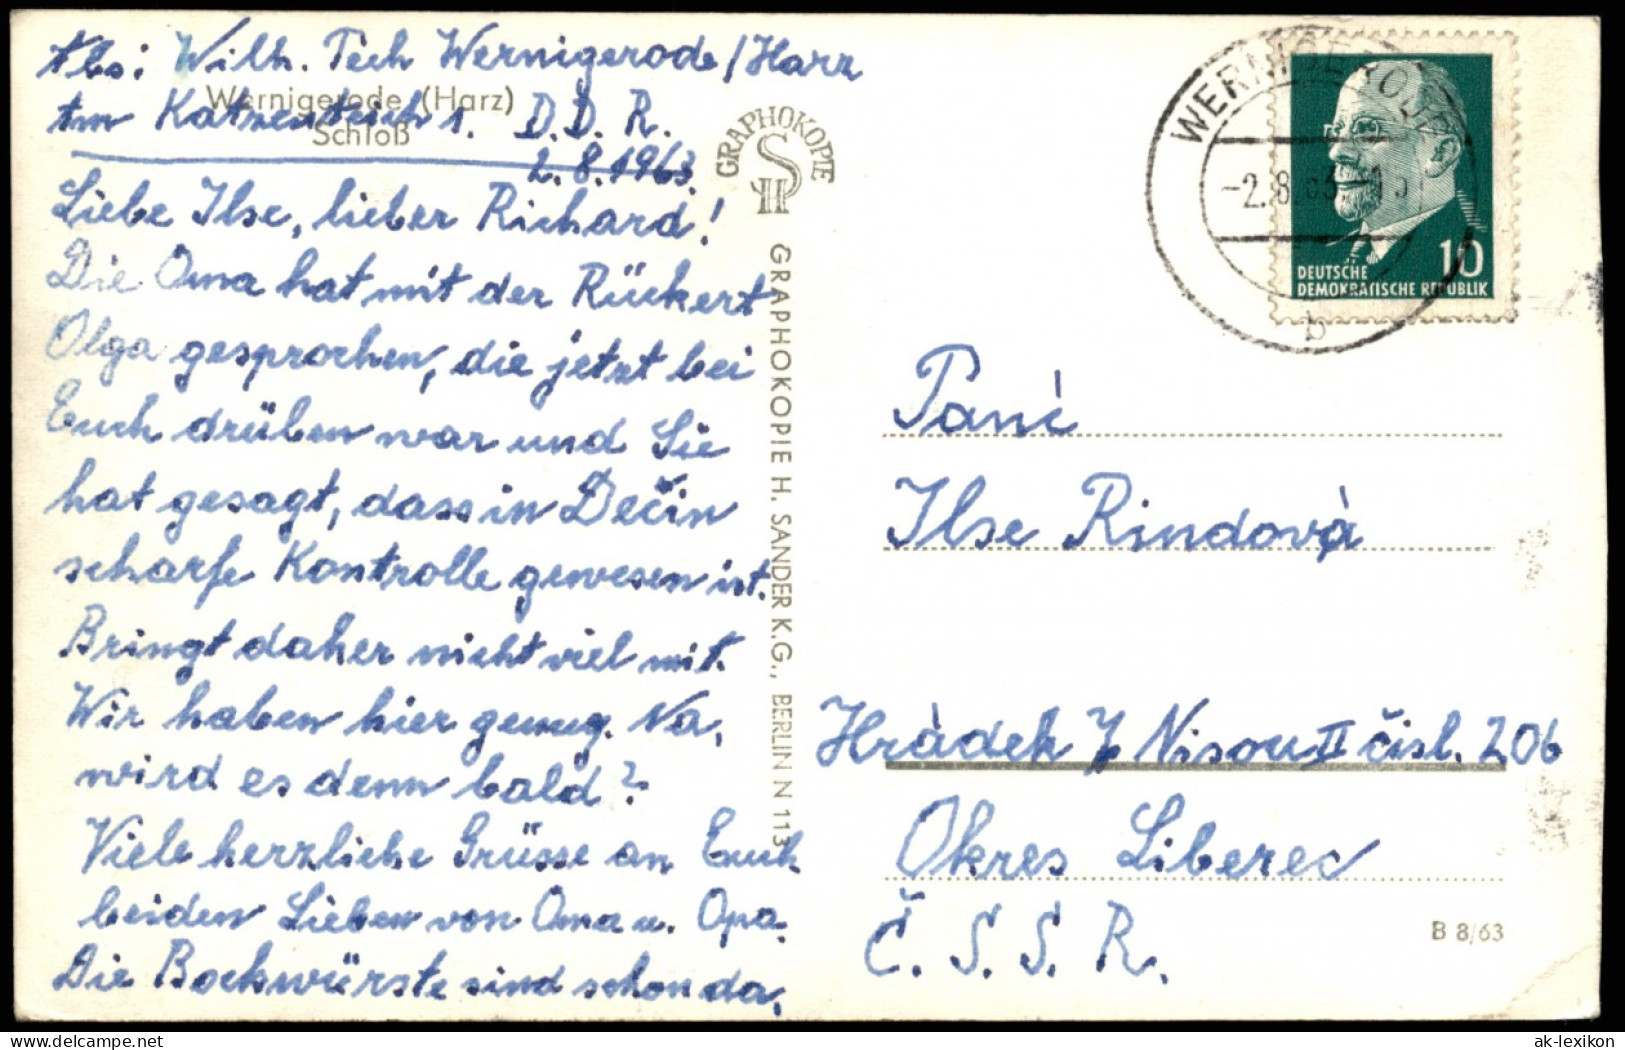 Abs: Wilh. Tech Wernigerode/Harz
Wernigerode (Harz)
Schloß
Am Katzenteich 1. D.D.R.
2.8.1963.
Liebe Ilse, lieber Richard!
Die Oma hat mit der Rückert
Olga gesprochen, die jetzt bei
Euch drüben war und Sie
hat gesagt, dass in Dečin
scharfe Kontrolle gewesen ist.
Bringt daher nicht viel mit.
Wir haben hier genug. Na,
wird es denn bald?
Viele herzliche Grüsse an Euch
beiden Lieben von Oma u. Opa.
Die Bockwürste sind schon da.
GRAPHOKOPIE
HS
GRAPHOKOPIE H. SANDER K.G., BERLIN N 113
WERNIGERODE
-2.8.63-
b
10
DEUTSCHE
DEMOKRATISCHE REPUBLIK
Paní
Ilse Rindovà
Hràdek Nisou II čisl. 206
Okres Liberec
Č. S. S. R.
B 8/63
ak-lexikon